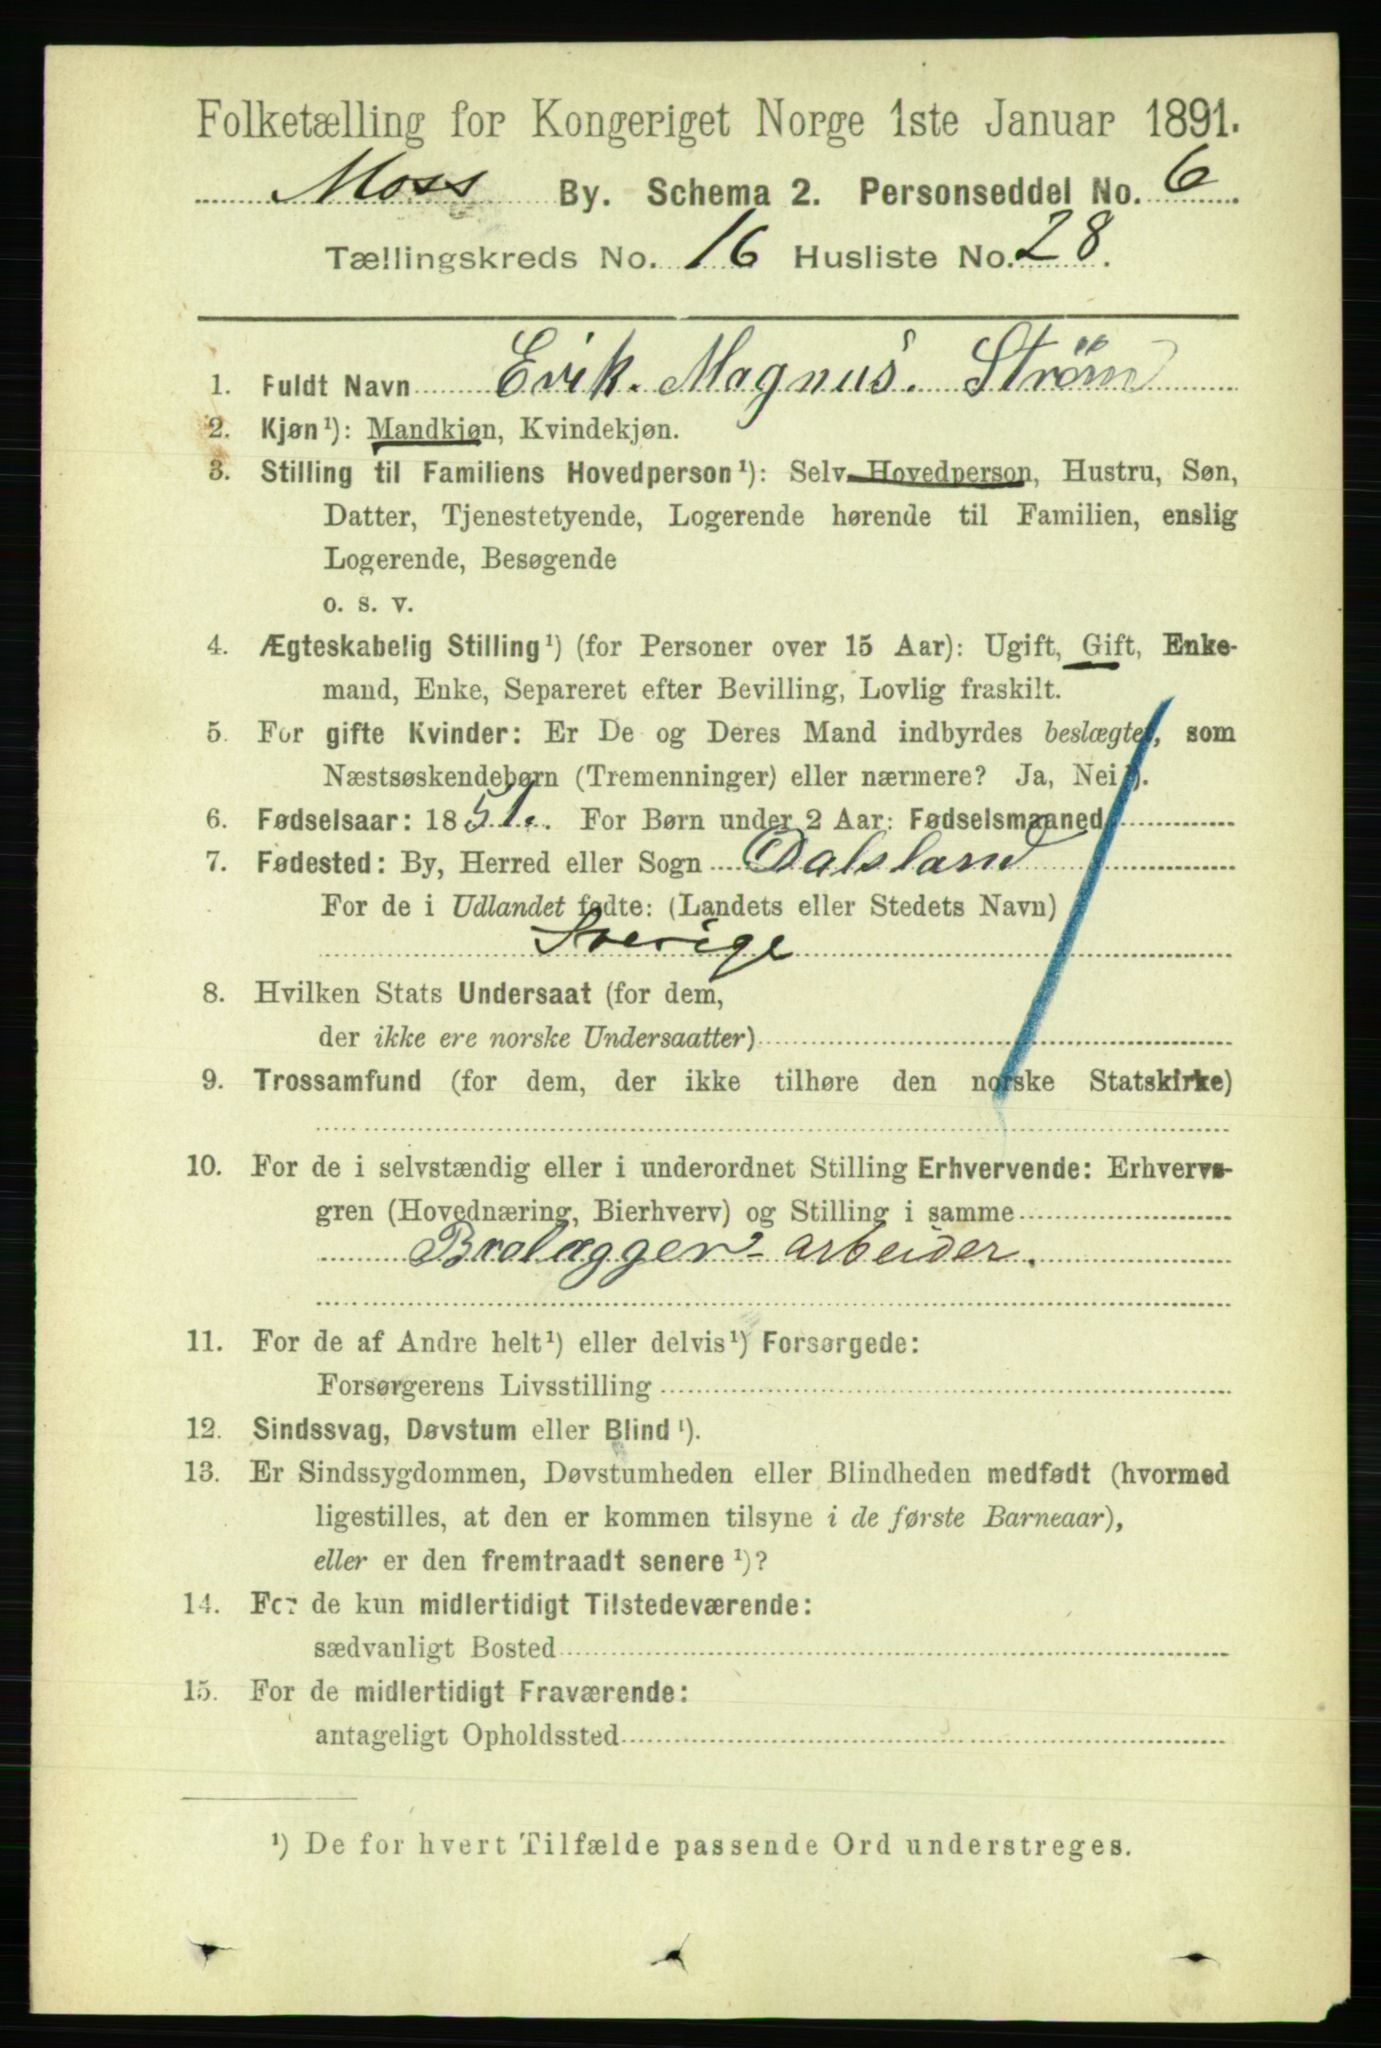 Folketælling for Kongeriget Norge 1ste Januar 1891.
Moss By. Schema 2. Personseddel No. 6
Tællingskreds No. 16 Husliste No. 28.
1. Fuldt Navn Erik. Magnus. Strøm
2. Kjøn¹): Mandkjøn, Kvindekjøn.
3. Stilling til Familiens Hovedperson¹): Selv Hovedperson, Hustru, Søn,
Datter, Tjenestetyende, Logerende hørende til Familien, enslig
Logerende, Besøgende
o. s. v.
4. Ægteskabelig Stilling¹) (for Personer over 15 Aar): Ugift, Gift, Enke-
mand, Enke, Separeret efter Bevilling, Lovlig fraskilt.
5. For gifte Kvinder: Er De og Deres Mand indbyrdes beslægtet, som
Næstsøskendebørn (Tremenninger) eller nærmere? Ja, Nei¹).
6. Fødselsaar: 1851. For Børn under 2 Aar: Fødselsmaaned
7. Fødested: By, Herred eller Sogn Dalsland
For de i Udlandet fødte: (Landets eller Stedets Navn)
Sverige
8. Hvilken Stats Undersaat (for dem,
der ikke ere norske Undersaatter)
9. Trossamfund (for dem, der ikke tilhøre den norske Statskirke)
10. For de i selvstændig eller i underordnet Stilling Erhvervende: Erhvervs-
gren (Hovednæring, Bierhverv) og Stilling i samme
Brolægger-arbeider.
11. For de af Andre helt¹) eller delvis¹) Forsørgede:
Forsørgerens Livsstilling
12. Sindssvag, Døvstum eller Blind¹).
13. Er Sindssygdommen, Døvstumheden eller Blindheden medfødt (hvormed
ligestilles, at den er kommen tilsyne i de første Barneaar),
eller er den fremtraadt senere¹)?
14. For de kun midlertidigt Tilstedeværende:
sædvanligt Bosted
15. For de midlertidigt Fraværende:
antageligt Opholdssted
¹) De for hvert Tilfælde passende Ord understreges.